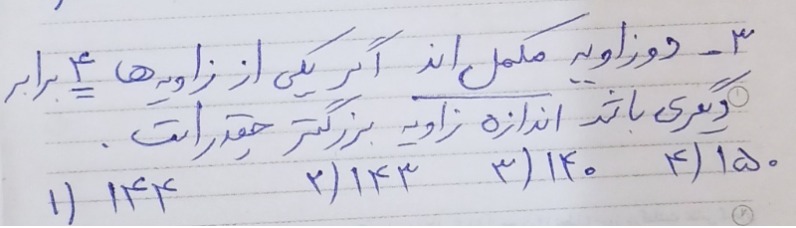 ۳- دو زاویه مکمل اند اگر یکی از زاویه ها ۴ برابر
دیگری باشد اندازه زاویه بزرگتر چقدر است .
۱) ۱۴۴ ۲) ۱۴۳ ۳) ۱۴۰ ۴) ۱۵۰